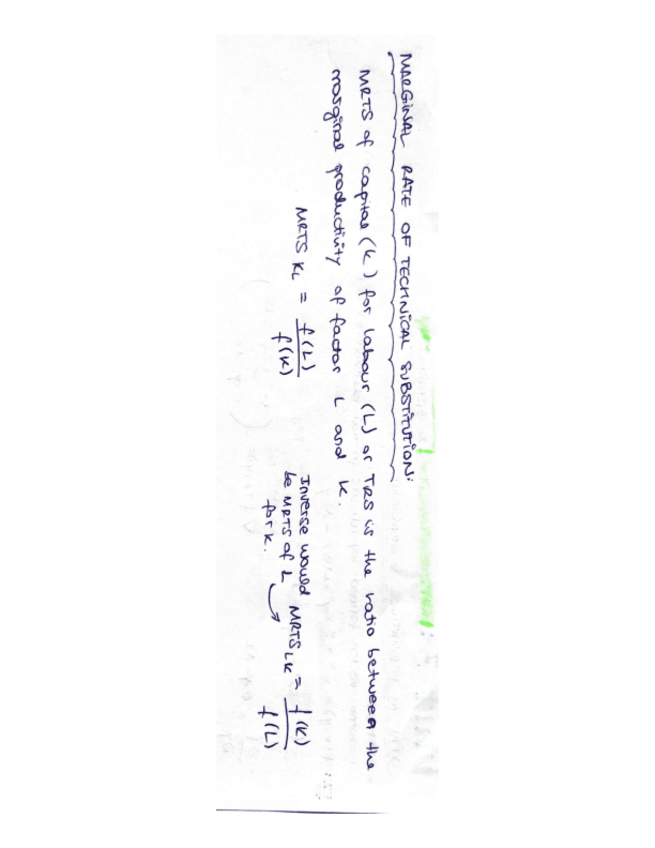 MARGINAL RATE OF TECHNICAL SUBSTITUTION:
MRTS of capital (K) for labour (L) or TRS is the ratio between the
marginal productivity of factor L and K.
MRTS KL = f(L) / f(K)
Inverse would
be MRTS of L
for K.
MRTS LK = f(K) / f(L)